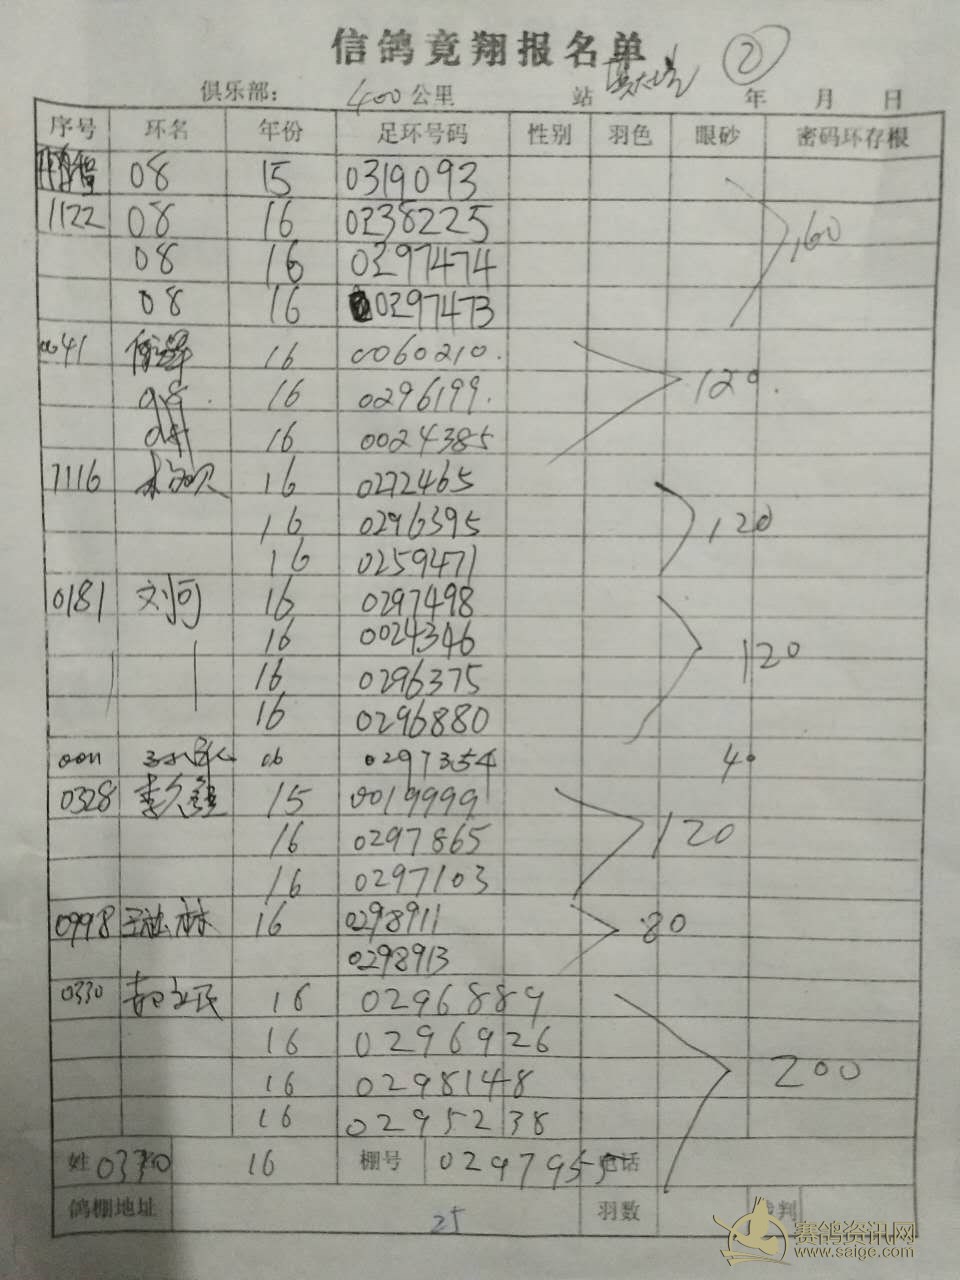 信鸽竟翔报名单
②
俱乐部： 400公里 站 年 月 日
序号 环名 年份 足环号码 性别 羽色 眼砂 密码环存根
08 15 0319093
1122 08 16 0238225
08 16 0297474
08 16 0297473
160
0041 16 0060210.
08 16 0296199.
08 16 0024385
120.
7116 16 0272465
16 0296395
16 0259471
120
0181 刘河 16 0297498
16 0024346
16 0296375
16 0296880
120
0011 16 0297354 40
0328 15 0019999
16 0297865
16 0297103
120
0998 王林 16 0298911
0298913
80
0330 郝文民 16 0296889
16 0296926
16 0298148
16 0295238
200
姓 0330 16 棚号 0297955 电话
鸽棚地址 25 羽数 裁判
赛鸽资讯网
www.saige.com